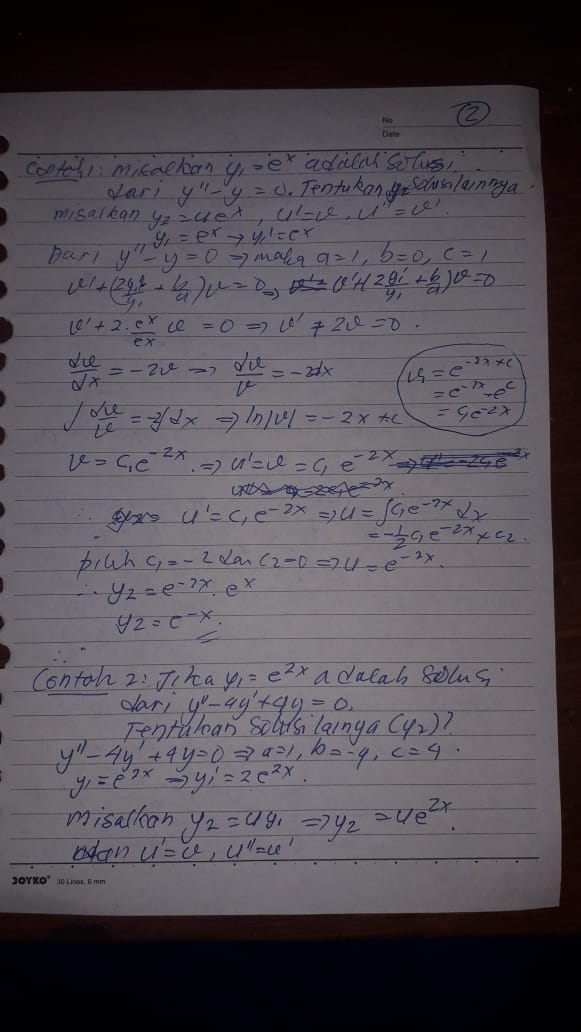 No
Date
②
Contoh 1: misalkan y₁ = eˣ adalah solusi
dari y'' - y = 0. Tentukan solusi lainnya.
misalkan y₂ = ueˣ, u' = v, u'' = v'.
y₁ = eˣ → y₁' = eˣ
Dari y'' - y = 0 ⇒ maka a = 1, b = 0, c = 1
v' + (2y₁'/y₁ + b/a) v = 0 ⇒ v' + (2y₁'/y₁ + b/a) v = 0
v' + 2 · eˣ/eˣ v = 0 ⇒ v' + 2v = 0.
dv/dx = -2v ⇒ dv/v = -2dx
∫ dv/v = -2∫dx ⇒ ln|v| = -2x + c
v₁ = e⁻²ˣ⁺ᶜ
= e⁻²ˣ · eᶜ
= c₁e⁻²ˣ
v = c₁e⁻²ˣ. ⇒ u' = v = c₁ e⁻²ˣ
∴ u' = c₁e⁻²ˣ ⇒ u = ∫c₁e⁻²ˣ dx
= -½ c₁e⁻²ˣ + c₂.
pilih c₁ = -2 dan c₂ = 0 ⇒ u = e⁻²ˣ.
∴ y₂ = e⁻²ˣ · eˣ
y₂ = e⁻ˣ.
∴
Contoh 2: Jika y₁ = e²ˣ adalah solusi
dari y'' - 4y' + 4y = 0,
Tentukan solusi lainya (y₂)?
y'' - 4y' + 4y = 0 ⇒ a = 1, b = -4, c = 4.
y₁ = e²ˣ ⇒ y₁' = 2e²ˣ.
misalkan y₂ = uy₁ ⇒ y₂ = ue²ˣ.
dan u' = v, u'' = v'
JOYKO 30 Lines, 6 mm